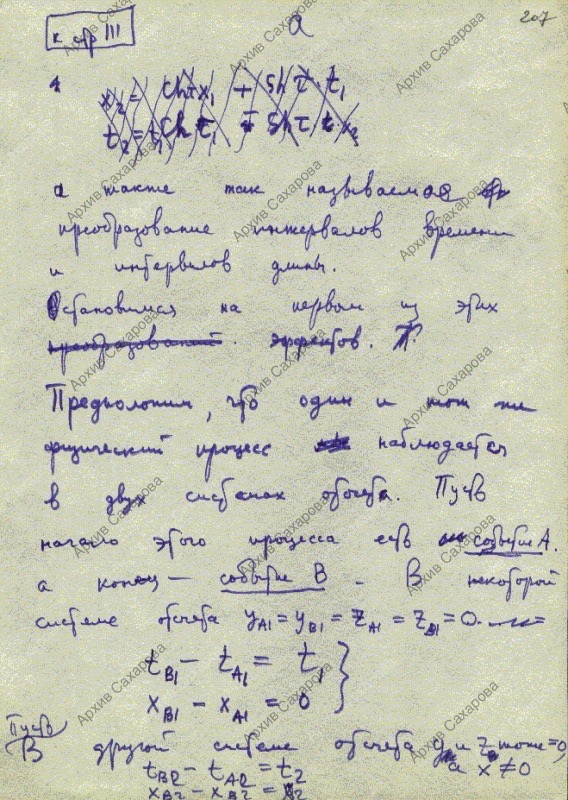 207
к стр III
a
x₂ = ch τ x₁ + sh τ t₁
t₂ = ch τ t₁ + sh τ x₂
а также так называемое
преобразование интервалов времени
и интервалов длины.
Остановимся на первом из этих
преобразований эффектов.
Предположим, что один и тот же
физический процесс наблюдается
в двух системах отсчета. Пусть
начало этого процесса есть событие A.
а конец — событие B. В некоторой
системе отсчета y_A1 = y_B1 = z_A1 = z_B1 = 0.
t_B1 − t_A1 = t₁ }
x_B1 − x_A1 = 0
Пусть
В другой системе отсчета y и z тоже = 0,
а x ≠ 0
t_B2 − t_A2 = t₂
x_B2 − x_B2 = x₂
Архив Сахарова